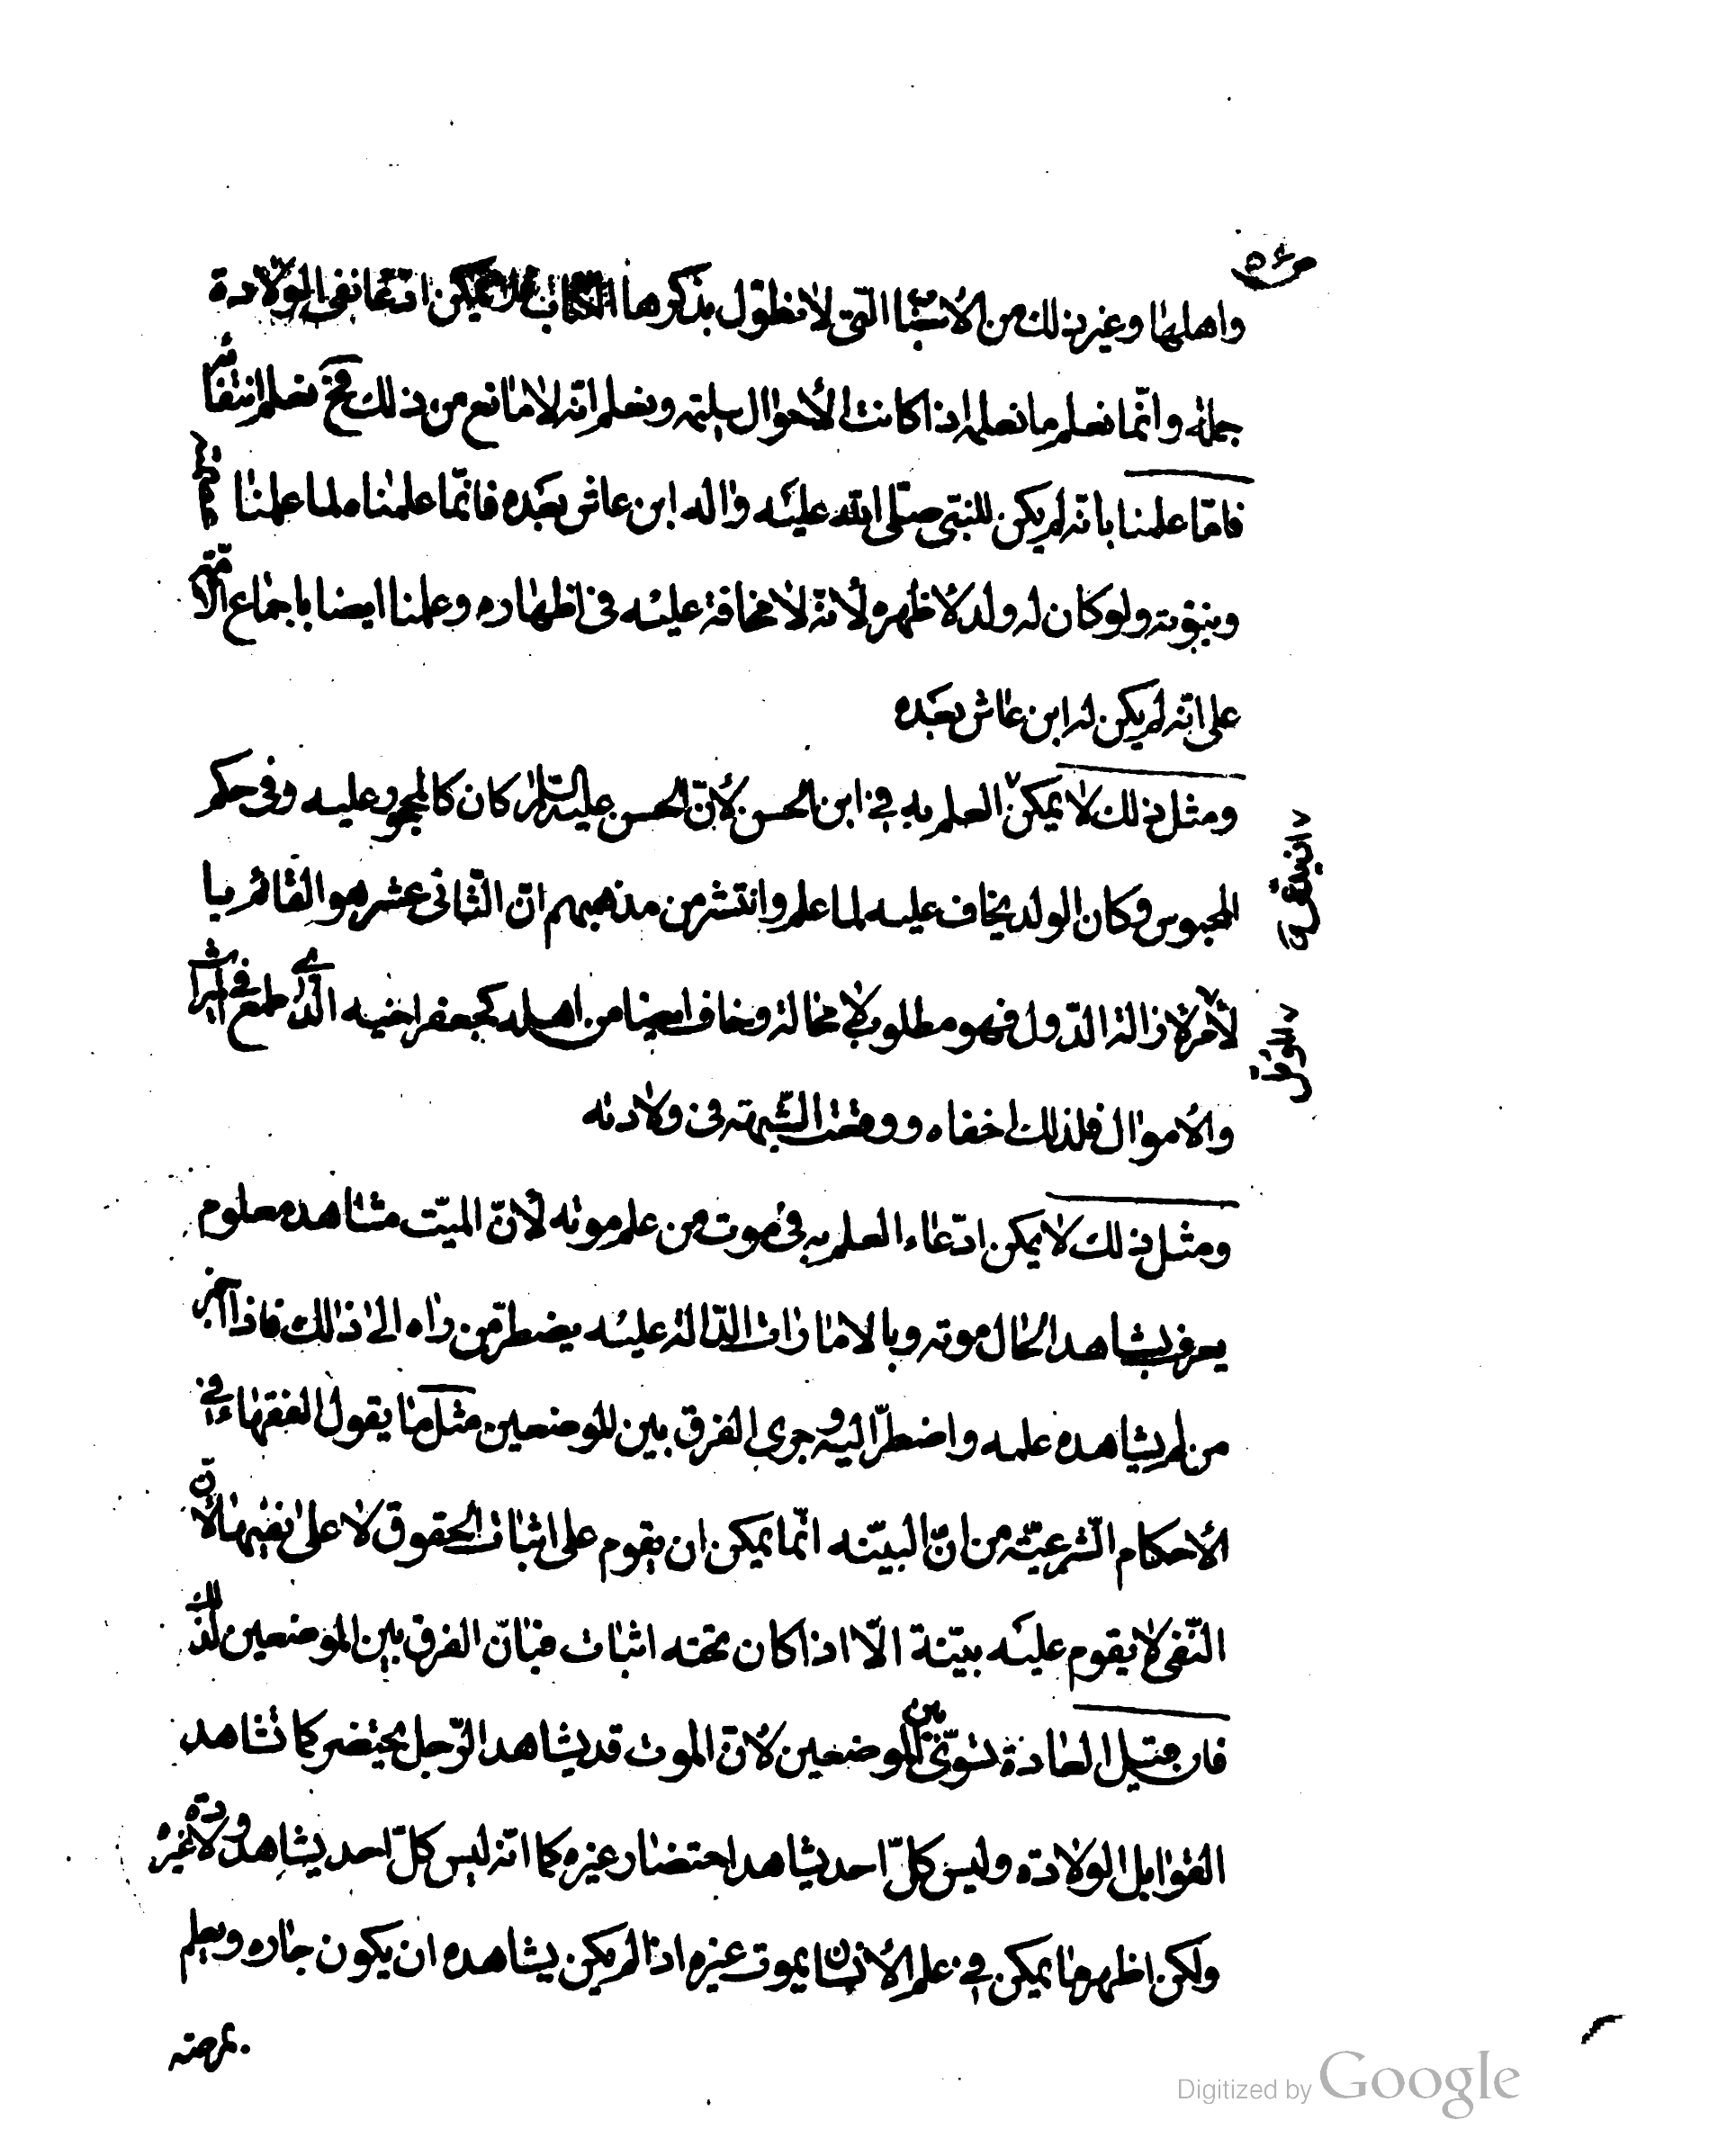 واهلها وغير ذلك من الاشيا التى لا نطول بذكرها الكتاب فلا يمكن ادعا نفى الولادة
جملة وانما نعلم ما نعلمه اذا كانت الأحوال سليمة ونعلم انه لا مانع من ذلك فح نعلم انتفائه
فاما علمنا بانه لم يكن للنبى صلى الله عليه واله ابن عاش بعده فانما علمناه لما علمنا
ونبوته ولو كان له ولد لاظهره لأنه لا مخافة عليه فى اظهاره وعلمنا ايضا باجماع الأمة
على انه لم يكن له ابن عاش بعده
ومثل ذلك لا يمكن العلم به فى ابن الحسن لأن الحسن عليه السلام كان كالمحجور عليه وفى حكم
المحبوس وكان الولد يخاف عليه لما علم وانتشر من مذهبهم ان الثانى عشر هو القائم با
لأمر لازالة الدول فهو مطلوب لا محالة وخاف ايضا من اهله كجعفر اخيه الذى طمع فى الميراث
والأموال فلذلك اخفاه ووقعت الشبهة فى ولادته
ومثل ذلك لا يمكن ادعاء العلم به فى موت من علم موته لأن الميت مشاهد معلوم
يعرف بشاهد الحال موته وبالامارات الدالة عليه يضطر من راه الى ذلك فاذا اخبر
من لم يشاهده علمه واضطر اليه وجرى الفرق بين الموضعين مثل ما يقول الفقهاء فى
الأحكام الشرعية من ان البينه انما يمكن ان يقوم على اثبات الحقوق لا على نفيها لأن
النفى لا يقوم عليه بينة الا اذا كان تحته اثبات فبان الفرق بين الموضعين لذلك
فان قيل العادة تسوى بين الموضعين لأن الموت قد يشاهد الرجل يحتضر كما تشاهد
القوابل الولادة وليس كل احد يشاهد احتضار غيره كما انه ليس كل احد يشاهد ولادة غيره
ولكن اظهر ما يمكن فى علم الأنسان بموت غيره اذا لم يكن يشاهده ان يكون جاره ويعلم
بمرضه